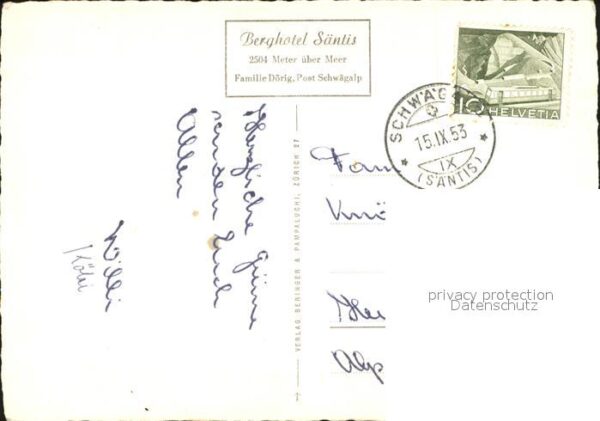 Berghotel Säntis
2504 Meter über Meer
Familie Dörig, Post Schwägalp
10 HELVETIA
SCHWÄG
15.IX.53
IX
(SÄNTIS)
Herzliche Grüsse
senden Euch
Allen
Willi
VERLAG BERINGER & PAMPALUCHI, ZÜRICH 27
Fam
privacy protection
Datenschutz